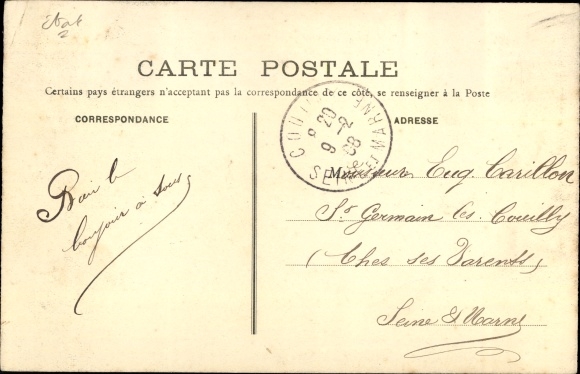 état
2
CARTE POSTALE
Certains pays étrangers n'acceptant pas la correspondance de ce côté, se renseigner à la Poste
CORRESPONDANCE
ADRESSE
bonjour à tous
Monsieur Eug. Carillon
St Germain les Couilly
(Chez ses Parents)
Seine & Marne